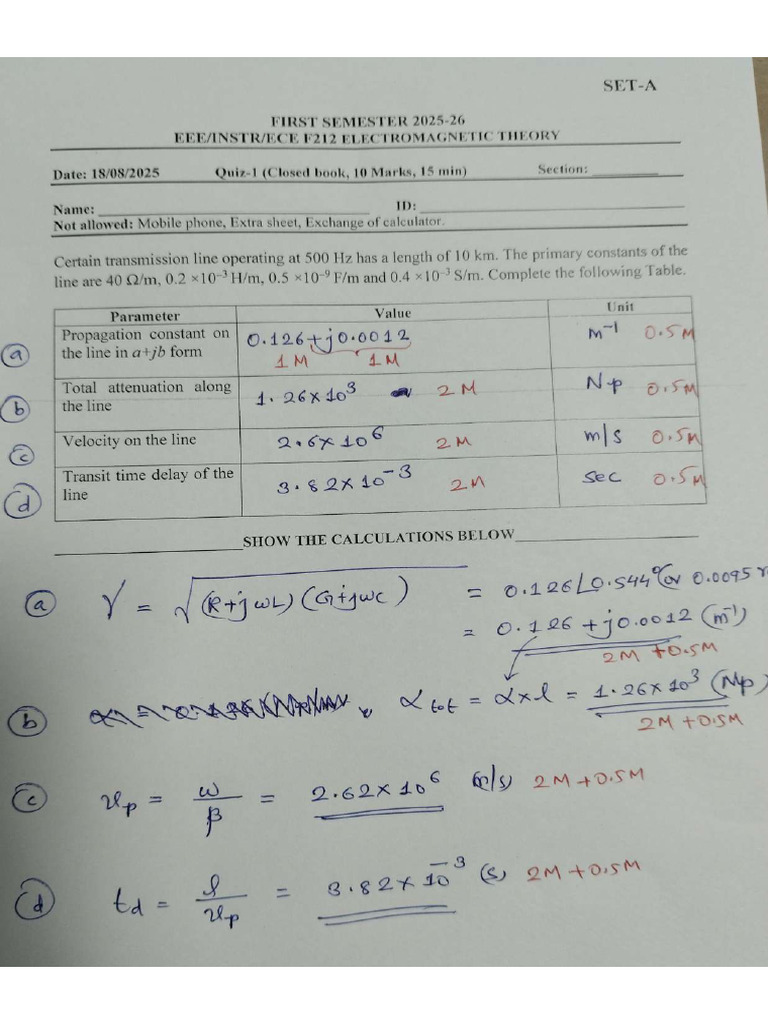 SET-A
FIRST SEMESTER 2025-26
EEE/INSTR/ECE F212 ELECTROMAGNETIC THEORY
Date: 18/08/2025 Quiz-1 (Closed book, 10 Marks, 15 min) Section: ________
Name: ________ ID: ________
Not allowed: Mobile phone, Extra sheet, Exchange of calculator.
Certain transmission line operating at 500 Hz has a length of 10 km. The primary constants of the
line are 40 Ω/m, 0.2 ×10⁻³ H/m, 0.5 ×10⁻⁹ F/m and 0.4 ×10⁻³ S/m. Complete the following Table.
Parameter Value Unit
(a) Propagation constant on the line in a+jb form 0.126+j0.0012 m⁻¹ 0.5M
1M 1M
(b) Total attenuation along the line 1.26×10³ 2M Np 0.5M
(c) Velocity on the line 2.6×10⁶ 2M m/s 0.5M
(d) Transit time delay of the line 3.82×10⁻³ 2M sec 0.5M
SHOW THE CALCULATIONS BELOW
(a) γ = √(R+jωL)(G+jωC) = 0.126∠0.544° (or 0.0095 r
= 0.126+j0.0012 (m⁻¹)
2M+0.5M
(b) α tot = α×l = 1.26×10³ (Np)
2M+0.5M
(c) υp = ω/β = 2.62×10⁶ (m/s) 2M+0.5M
(d) td = l/υp = 3.82×10⁻³ (s) 2M+0.5M